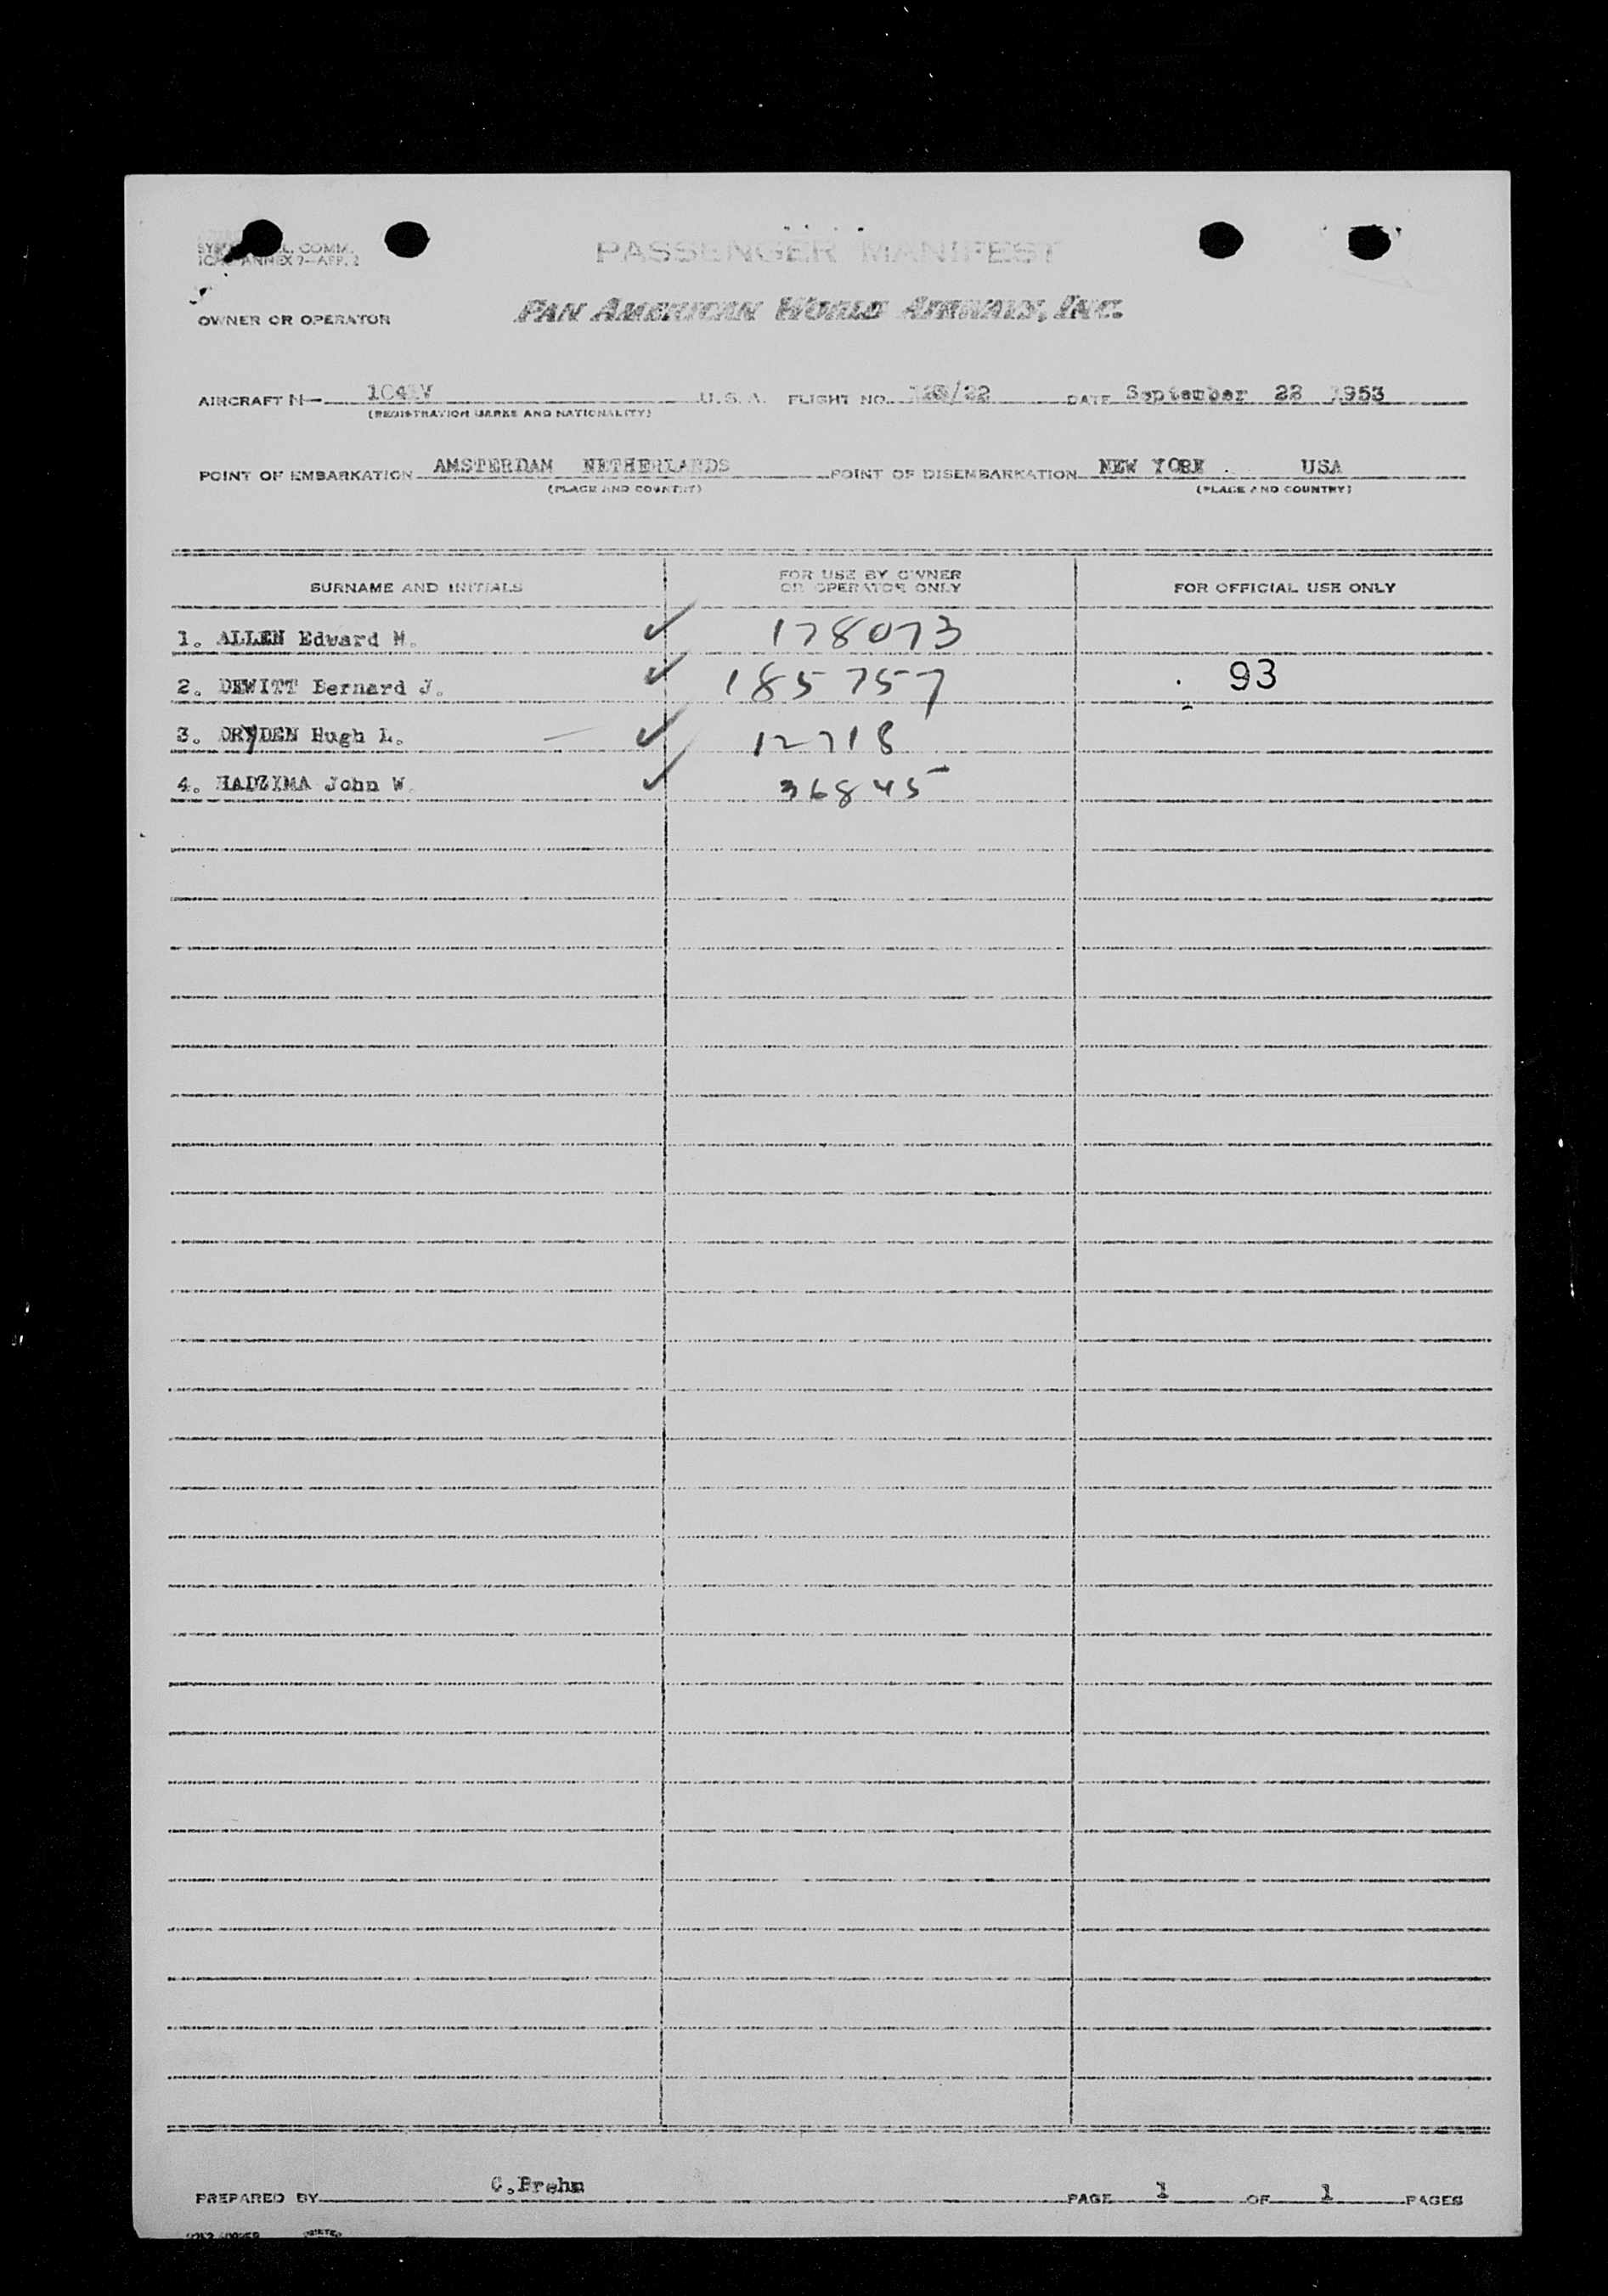 PASSENGER MANIFEST
COMM.
ANNEX 9-APP. 2
OWNER OR OPERATOR PAN AMERICAN WORLD AIRWAYS, INC.
AIRCRAFT N— U.S.A. FLIGHT NO. DATE September 22 1953
(REGISTRATION MARKS AND NATIONALITY)
POINT OF EMBARKATION AMSTERDAM NETHERLANDS POINT OF DISEMBARKATION NEW YORK USA
(PLACE AND COUNTRY) (PLACE AND COUNTRY)
FOR USE BY OWNER
SURNAME AND INITIALS OR OPERATOR ONLY FOR OFFICIAL USE ONLY
1. ALLEN Edward M. ✓ 178073
2. DEWITT Bernard J. ✓ 185757 93
3. DRYDEN Hugh L. ✓ 12718
4. HADZIMA John W. ✓ 36845
PREPARED BY C.Brehm PAGE 1 OF 1 PAGES